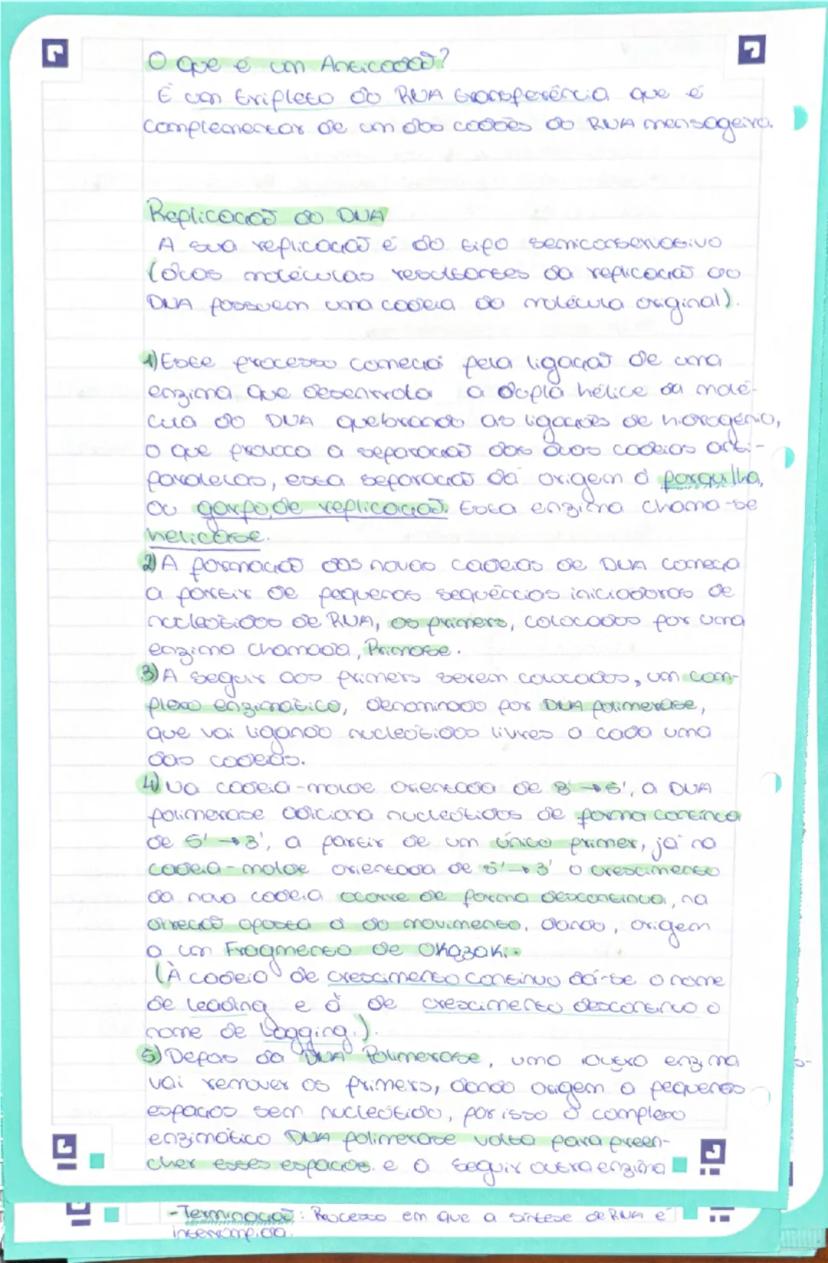 O que é um Anticodão?
É um tripleto do RNA transferência que é
complementar de um dos codões do RNA mensageiro.
Replicação do DNA
A sua replicação é do tipo semiconservativo
(duas moléculas resultantes da replicação do
DNA possuem uma cadeia da molécula original).
1) Este processo começa pela ligação de uma
enzima que desenrola a dupla hélice da molé-
cula do DNA quebrando as ligações de hidrogénio,
o que provoca a separação das duas cadeias anti-
paralelas, essa separação dá origem à forquilha,
ou garfo de replicação. Esta enzima chama-se
helicase.
2) A formação das novas cadeias de DNA começa
a partir de pequenas sequências iniciadoras de
nucleótidos de RNA, os primers, colocados por uma
enzima chamada, Primase.
3) A seguir aos primers serem colocados, um com-
plexo enzimático, denominado por DNA polimerase,
que vai ligando nucleótidos livres a cada uma
das cadeias.
4) Na cadeia-molde orientada de 3' → 5', a DNA
polimerase adiciona nucleótidos de forma contínua
de 5' → 3', a partir de um único primer, já na
cadeia-molde orientada de 5' → 3' o crescimento
da nova cadeia ocorre de forma descontínua, na
direção oposta à do movimento, dando, origem
a um Fragmento de Okazaki.
(À cadeia de crescimento contínuo dá-se o nome
de leading e à de crescimento descontínuo o
nome de Lagging.).
5) Depois da DNA Polimerase, uma outra enzima
vai remover os primers, dando origem a pequenos
espaços sem nucleótido, por isso o complexo
enzimático DNA polimerase volta para preen-
cher esses espaços e a seguir outra enzima
-Terminação: Processo em que a síntese de RNA é
interrompida.